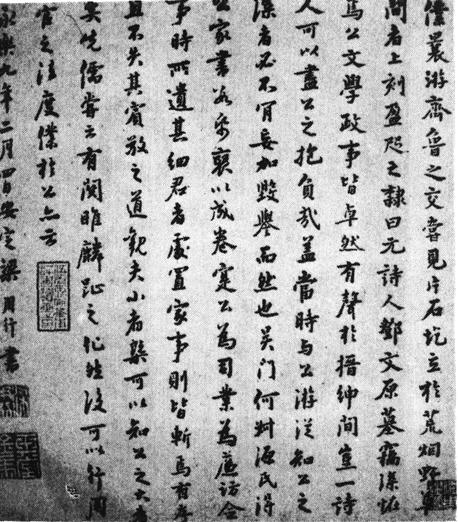 僕曩游齊魯之交嘗見片石屹立於荒烟野草
間者上刻盈咫之隸曰元詩人鄧文原墓竊深
焉公文學政事皆卓然有聲於搢紳間豈一詩
人可以盡公之抱負哉蓋當時與公游從知公之
深者必不肎妄加毀譽而然也吳门何彬源氏得
公家書數番裒以成卷寔公為司業為廉訪僉
事時所遺其細君者處置家事則皆斬焉有
且不失其賓敬之道觀夫小者槩可以知公之大者
矣先儒嘗云有関雎麟趾之化然後可以行周
官之法度僕於公亦云
永樂九年二月四日安定梁用行書